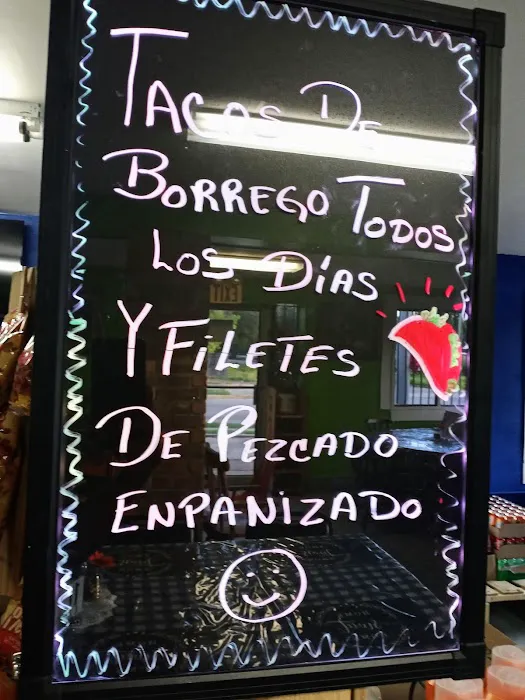 Tacas De
Borrego Todos
Los Días
Y Filetes
De Pezcado
Enpanizado
EXIT